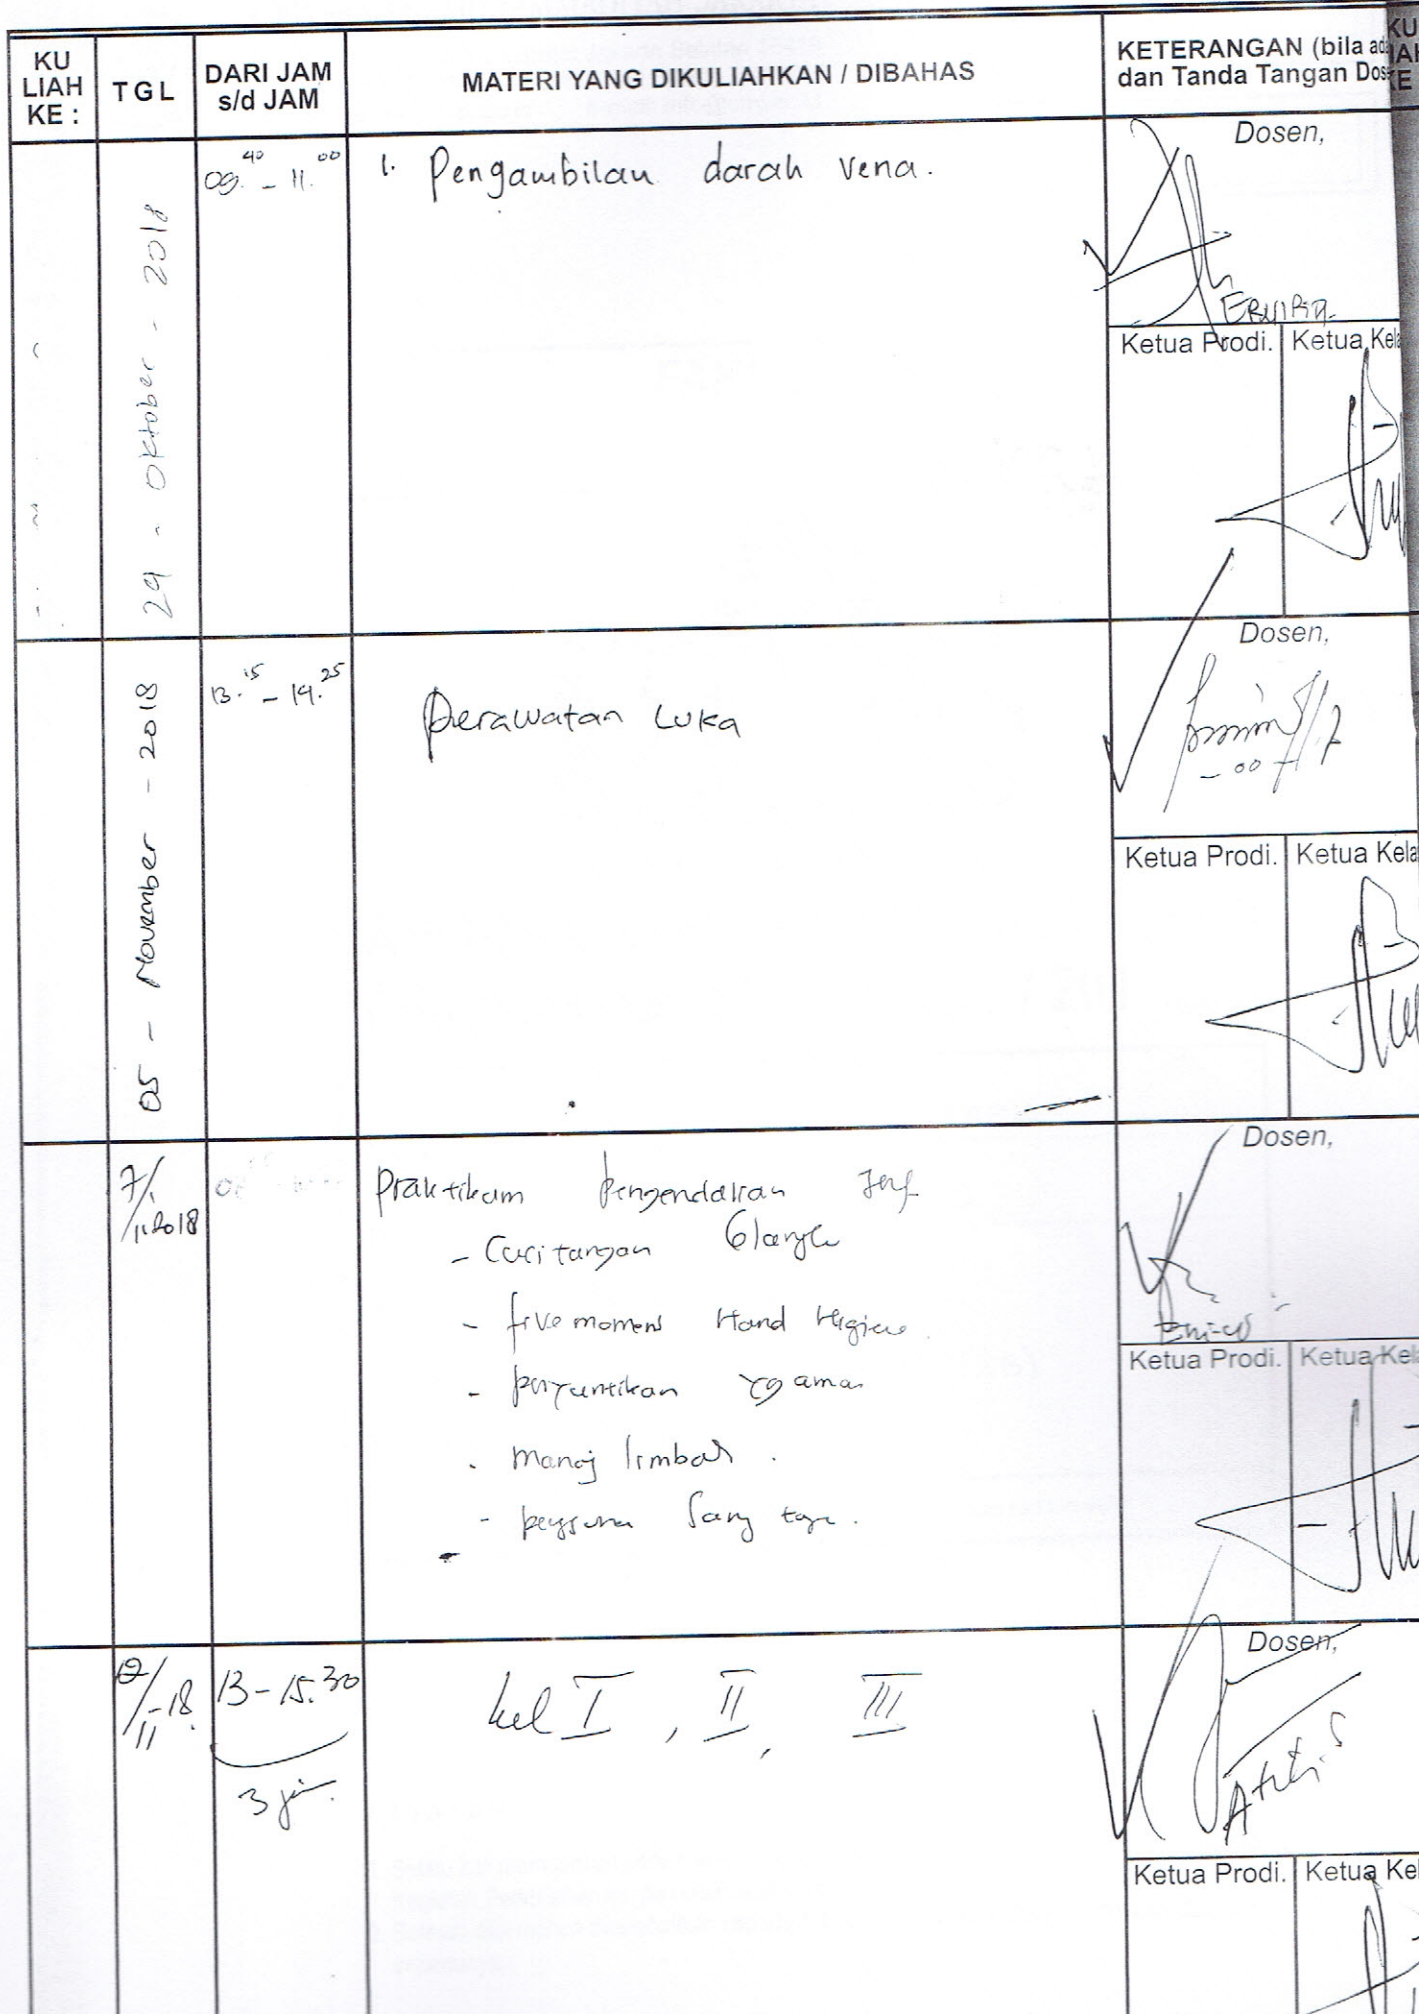 KU LIAH KE :
TGL
DARI JAM s/d JAM
MATERI YANG DIKULIAHKAN / DIBAHAS
KETERANGAN (bila ada
dan Tanda Tangan Dos
29 - Oktober - 2018
09.40 - 11.00
1. Pengambilan darah vena.
Dosen,
Ketua Prodi.
Ketua Kela
05 - November - 2018
13.15 - 14.25
Perawatan Luka
Dosen,
Ketua Prodi.
Ketua Kela
7/11 2018
Praktikum Pengendalian
- Cuci tangan 6 langk
- five momen Hand Higiene
- penyuntikan yg aman
- Manaj limbah.
Dosen,
Ketua Prodi.
Ketua Kela
13 - 15.30
3 jam
kel I, II, III
Dosen,
Ketua Prodi.
Ketua Kel